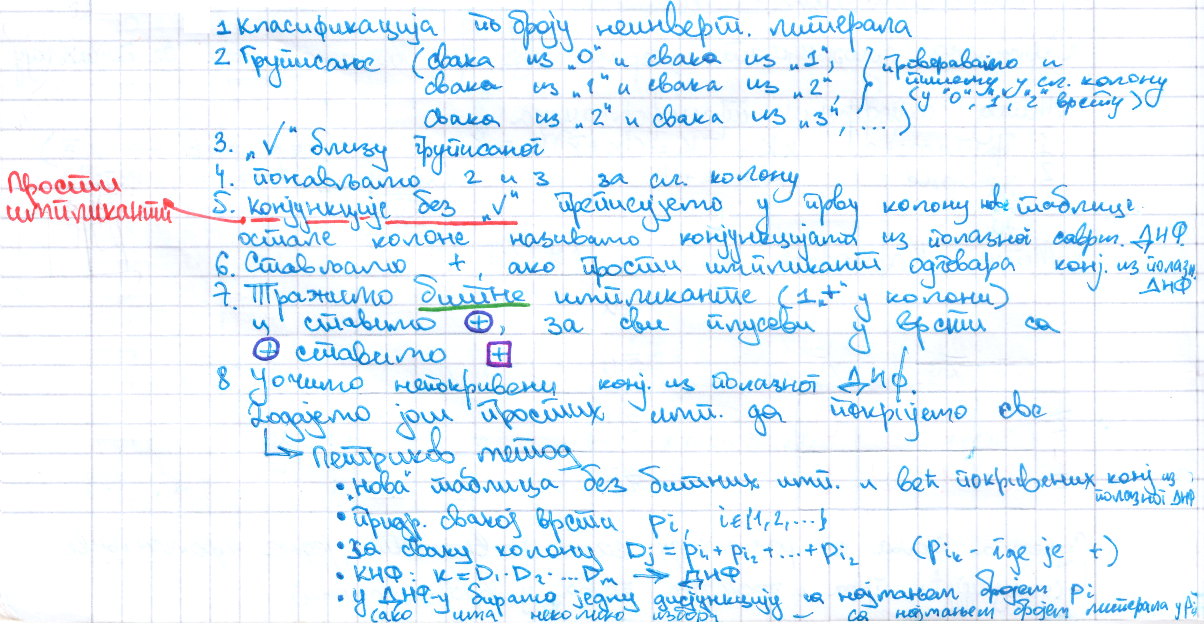 1 Класификација по броју неинверт. литерала
2 Груписање (свака из „0“ и свака из „1“,
свака из „1“ и свака из „2“,
свака из „2“ и свака из „3“, ...)
проверавамо и
пишемо у сл. колону
(у "0", "1", "2" врсту)
3. „√“ близу груписаног
4. понављамо 2 и 3 за сл. колону
Прости
импликанти
5. конјункције без „√“ преписујемо у прву колону нове таблице
остале колоне називамо конјункцијама из полазног саврш. ДНФ
6. Стављамо +, ако прости импликант одговара конј. из полазн.
ДНФ
7. Тражимо битне импликанте (1 „+“ у колони)
и ставимо ⊕, за сви плусеви у врсти са
⊕ ставимо ⊞
8 Уочимо непокривени конј. из полазног ДНФ.
Додајемо још простих имп. да покријемо све
Петриков метод
• „нова“ таблица без битних имп. и већ покривених конј. из
полазног ДНФ
• придр. свакој врсти pi, i∈{1,2,...}
• за сваку колону Dj = pi₁ + pi₂ + ... + pi₂ (pik - где је +)
• КНФ: K = D₁ · D₂ · ... Dm → ДНФ
• у ДНФ-у бирамо једну дисјункцију са најмањем бројем pi
(ако има неколико избора – са најмањем бројем литерала у pi